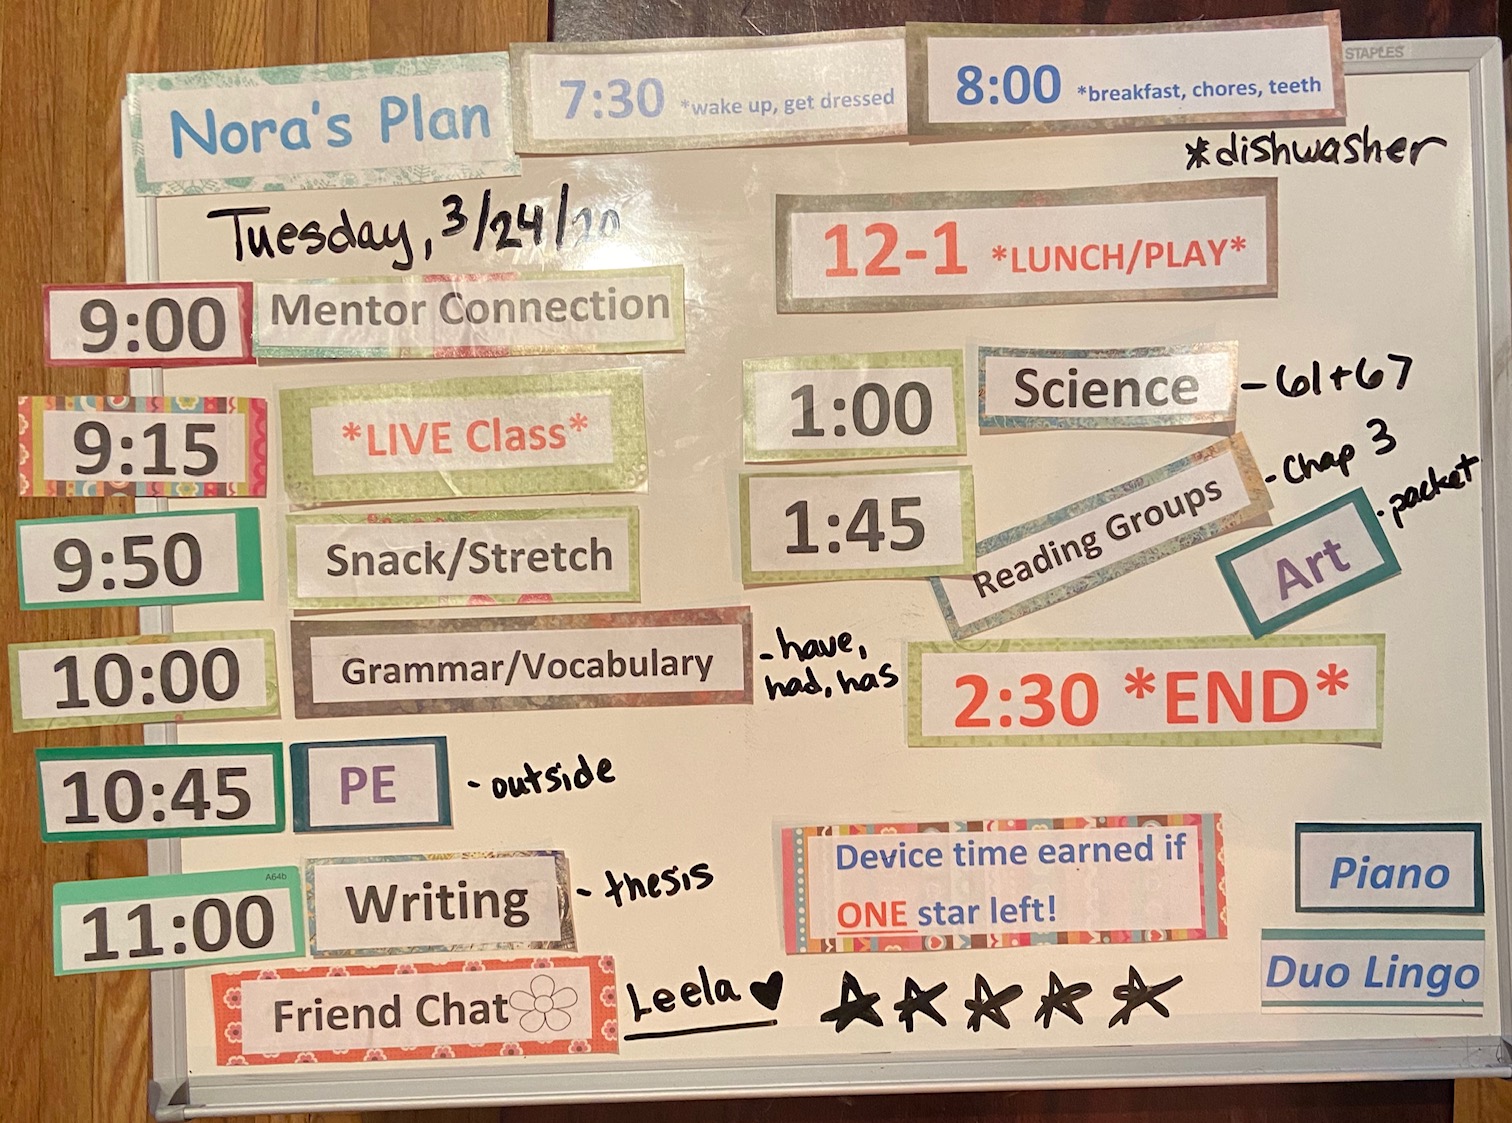 STAPLES
Nora's Plan
7:30 *wake up, get dressed
8:00 *breakfast, chores, teeth
*dishwasher
Tuesday, 3/24/20
9:00 Mentor Connection
9:15 *LIVE Class*
9:50 Snack/Stretch
10:00 Grammar/Vocabulary - have,
had, has
10:45 PE - outside
A64b
11:00 Writing - thesis
Friend Chat Leela
12-1 *LUNCH/PLAY*
1:00 Science - 61+67
1:45 Reading Groups - Chap 3
Art - packet
2:30 *END*
Device time earned if
ONE star left!
Piano
Duo Lingo